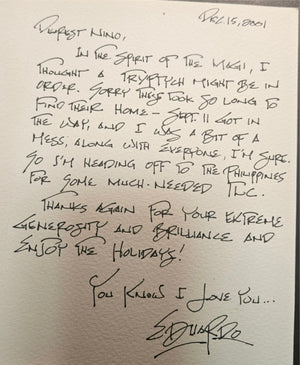 DEC 15, 2001
DEAREST NINO,
IN THE SPIRIT OF THE MAGI, I
THOUGHT A TRYPTYCH MIGHT BE IN
ORDER. SORRY THEY TOOK SO LONG TO
FIND THEIR HOME – SEPT. 11 GOT IN
THE WAY, AND I WAS A BIT OF A
MESS, ALONG WITH EVERYONE, I'M SURE.
SO I'M HEADING OFF TO THE PHILIPPINES
FOR SOME MUCH-NEEDED T.N.C.
THANKS AGAIN FOR YOUR EXTREME
GENEROSITY AND BRILLIANCE AND
ENJOY THE HOLIDAYS!
YOU KNOW I LOVE YOU...
EDUARDO